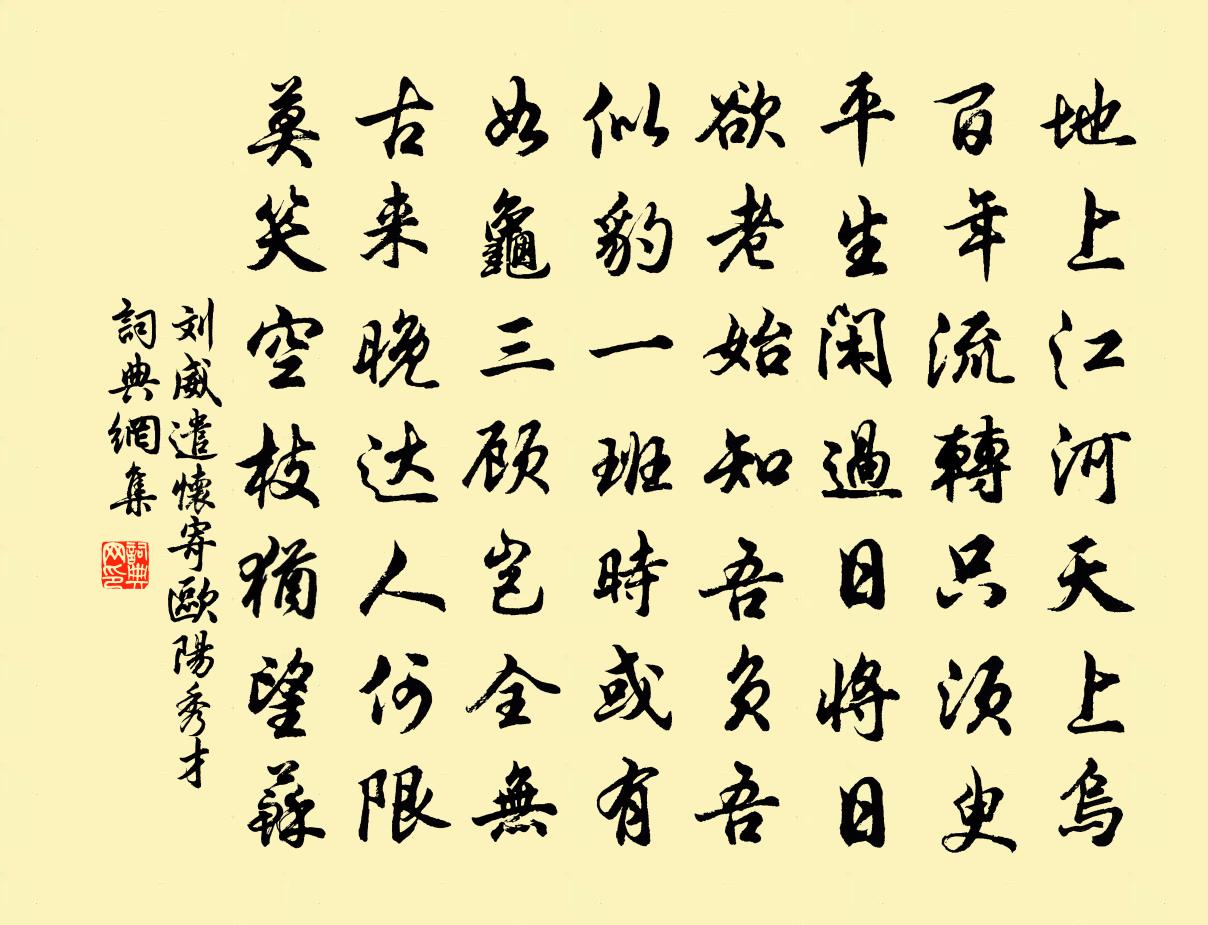 地上江河天上烏
百年流轉只須臾
平生閑過日將日
欲老始知吾負吾
似豹一班時或有
如龜三顾豈全無
古来晚达人何限
莫笑空枝猶望蘇
刘威遣懷寄歐陽秀才
詞典網集
詞典网印